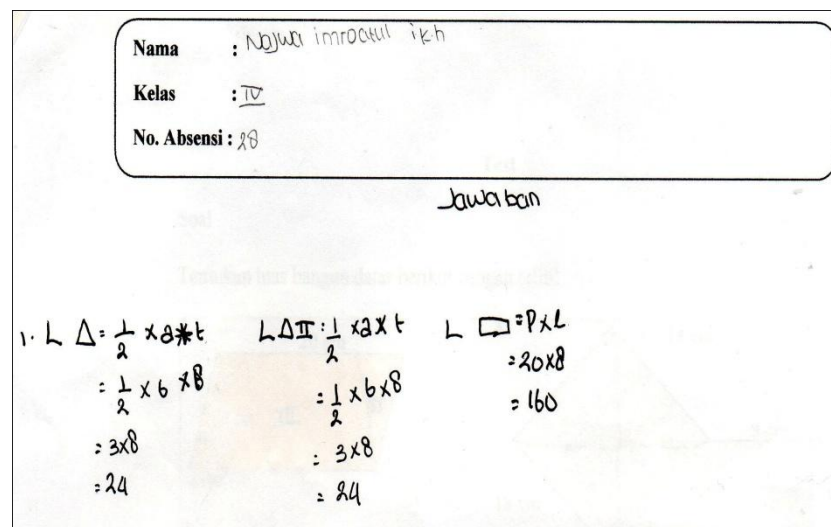 Nama : Najwa imroatul ikh
Kelas : IV
No. Absensi : 28
Jawaban
1. L Δ = 1/2 x a x t
= 1/2 x 6 x 8
= 3x8
= 24
L Δ II : 1/2 x a x t
= 1/2 x 6 x 8
= 3x8
= 24
L ▭ = P x L
= 20x8
= 160